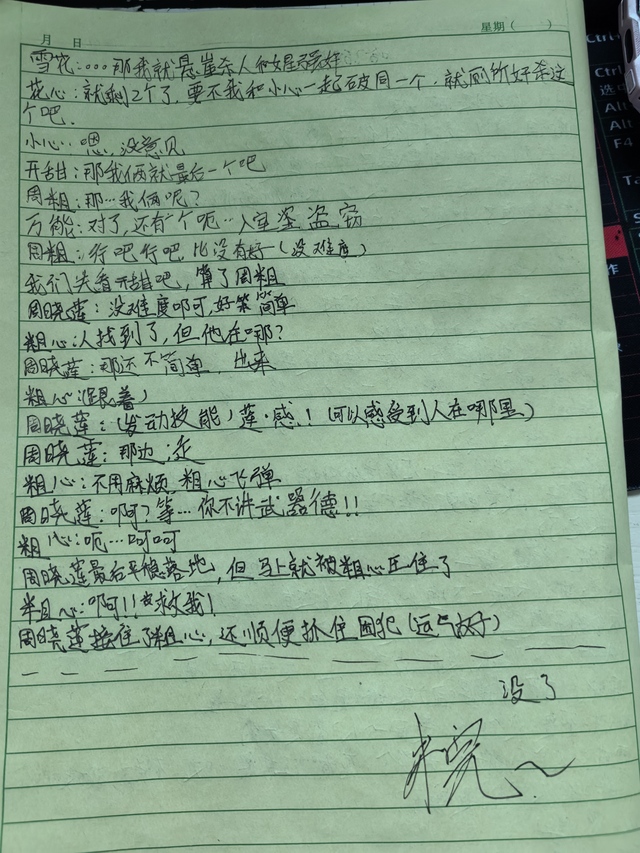 月 日 星期( )
雪花:....那我就是崔杀人和
花心:就剩2个了,要不我和小心一起破同一个,就厕所好杀这
个吧.
小心:嗯,没意见
开甜:那我俩就最后一个吧
周粗:那…我俩呢?
万能:对了,还有个呃…入室盗窃
周粗:行吧行吧,比没有好(没难度)
我们先看开甜吧,算了周粗
周晓莲:没难度啊可,好笨简单
粗心:人找到了,但他在哪?
周晓莲:那还不简单,出来
粗心(跟着)
周晓莲:(发动技能)莲·感!(可以感受到人在哪里)
周晓莲:那边,走
粗心:不用麻烦,粗心飞弹
周晓莲:啊?等…你不讲武器德!!
粗心:呃…呵呵
周晓莲最后平稳落地,但马上就被粗心压住了
粗心:啊!!救我!
周晓莲接住了粗心,还顺便抓住囚犯(运气好)
没了
Ctrl
Ctrl
Alt
F4